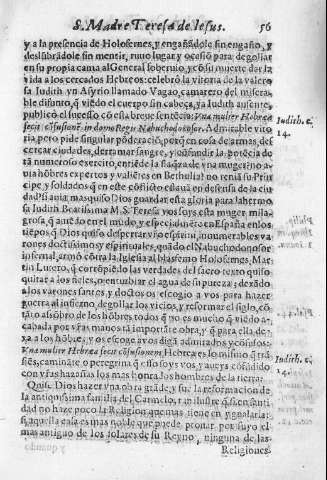 S. Madre Teresa de Iesus. 56
y a la presencia de Holofernes, y engañãdole sin engaño, y
deslũbrãdole sin mentir, tuuo lugar y ocasiõ para degollar
en su propia cama al General soberuio, y cõ su muerte dar la
vida a los cercados Hebreos: celebrò la vitoria de la valero
sa Iudith yn Asyrio llamado Vagao, camarero del misera-
ble difunto, q̃ viẽdo el cuerpo sin cabeça, ya Iudith ausente,
publicò el sucesso cõ esta breue sentẽcia: Vna mulier Hebræa
fecit cõfusionẽ in domo Regis Nabuchodonosor. Admirable vito
ria pero pide singular põderaciõ, porq̃ en cosa de armas, des
cercar ciudades, derramar sangre, y cõfundir la potẽcia de
tã numeroso exercito, entiẽde
la hõbres expertos y valiẽtes en Bethulia? no tenia su Prin
cipe y soldados q̃ en este cõflicto estauã en defensa de la ciu
dad? si auia mas quiso Dios guardar esta gloria para la hermo
sa Iudith. Beatissima M. S. Teresa vos soys esta muger mila
grosa, q̃ auiẽdo en el mũdo, y especialmẽte en España en los
tiẽpos q̃ Dios quiso despertar vr̃o espiritu, innumerables va
rones doctissimos y espirituales, quãdo el Nabuchodonosor
infernal, armò cõtra la Iglesia al blasfemo Holofernes, Mar
tin Lutero, q̃ corrõpiẽdo las verdades del sacro texto quiso
quitar a los fieles, no enturbiar el agua de su pureza; dexãdo
a los varones santos, y doctos os escogio a vos para hazer
guerra al infierno, degollar los vicios, y reformar el siglo, cõ
tãto assõbro de los hõbres todos q̃ no es mucho q̃ viẽdo a-
cabada por vr̃as manos tã importãte obra, y q̃ para ella de-
xa a los hõbres, y os escoge a vos digã admirados y cõfusos:
Vna mulier Hebræa fecit cõfusionem, Hebræa es lo mismo q̃ trã
siẽs, caminãte o peregrina q̃ esso soys vos, y aueys cõfũdido
con vr̃as hazañas los mas honrados hombres de la tierra.
Quiso Dios hazer vna obra grãde, y fue la reformacion de
la antiquissima familia del Carmelo, tan ilustre q̃ si en santi
dad no haze poco la Religion que mas tiene en ygualarla:
es aquella casa es mas noble que puede prouar por suyo el
mas antiguo de los solares de su Reyno, ninguna de las
Religiones
Iudith. c.
14.
Iudith. c.
14.